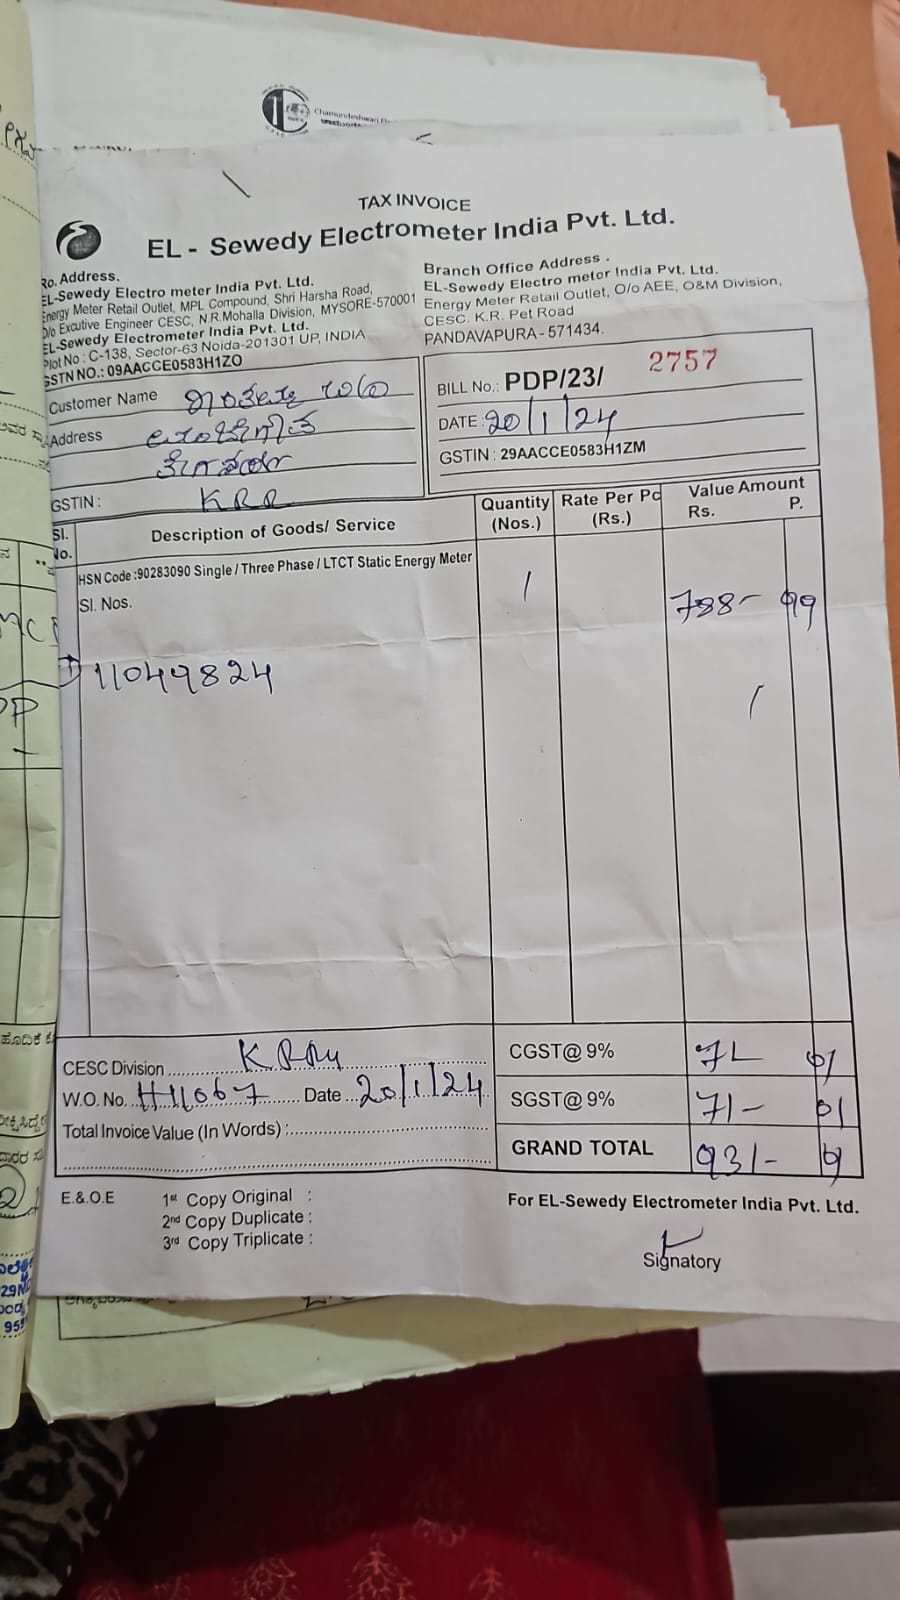 TAX INVOICE
EL - Sewedy Electrometer India Pvt. Ltd.
Ro. Address.
EL-Sewedy Electro meter India Pvt. Ltd.
Energy Meter Retail Outlet, MPL Compound, Shri Harsha Road,
O/o Excutive Engineer CESC, N.R.Mohalla Division, MYSORE-570001
EL-Sewedy Electrometer India Pvt. Ltd.
Plot No : C-138, Sector-63 Noida-201301 UP, INDIA
GSTN NO.: 09AACCE0583H1ZO
Branch Office Address .
EL-Sewedy Electro meter India Pvt. Ltd.
Energy Meter Retail Outlet, O/o AEE, O&M Division,
CESC. K.R. Pet Road
PANDAVAPURA - 571434.
Customer Name
Address
GSTIN : KRR
BILL No.: PDP/23/ 2757
DATE : 20/1/24
GSTIN : 29AACCE0583H1ZM
Sl. No. Description of Goods/ Service Quantity (Nos.) Rate Per Pc (Rs.) Value Amount Rs. P.
HSN Code :90283090 Single / Three Phase / LTCT Static Energy Meter
Sl. Nos. 1 788- 99
1) 11049824
CESC Division
W.O. No. Date 20/1/24
Total Invoice Value (In Words) :
CGST@ 9% 71- 01
SGST@ 9% 71- 01
GRAND TOTAL 931-
E.& O.E
1st Copy Original :
2nd Copy Duplicate :
3rd Copy Triplicate :
For EL-Sewedy Electrometer India Pvt. Ltd.
Signatory